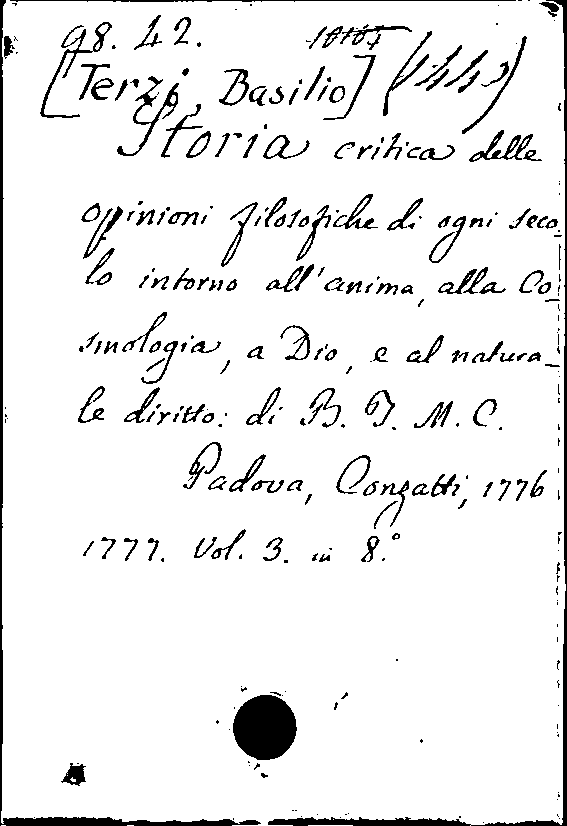 98. 42.
[Terzi, Basilio] (1443)
Storia critica delle
opinioni filosofiche di ogni seco
lo intorno all'anima, alla Co-
smologia, a Dio, e al natura-
le diritto: di B. T. M. C.
Padova, Conzatti, 1776
1777. Vol. 3. in 8.°